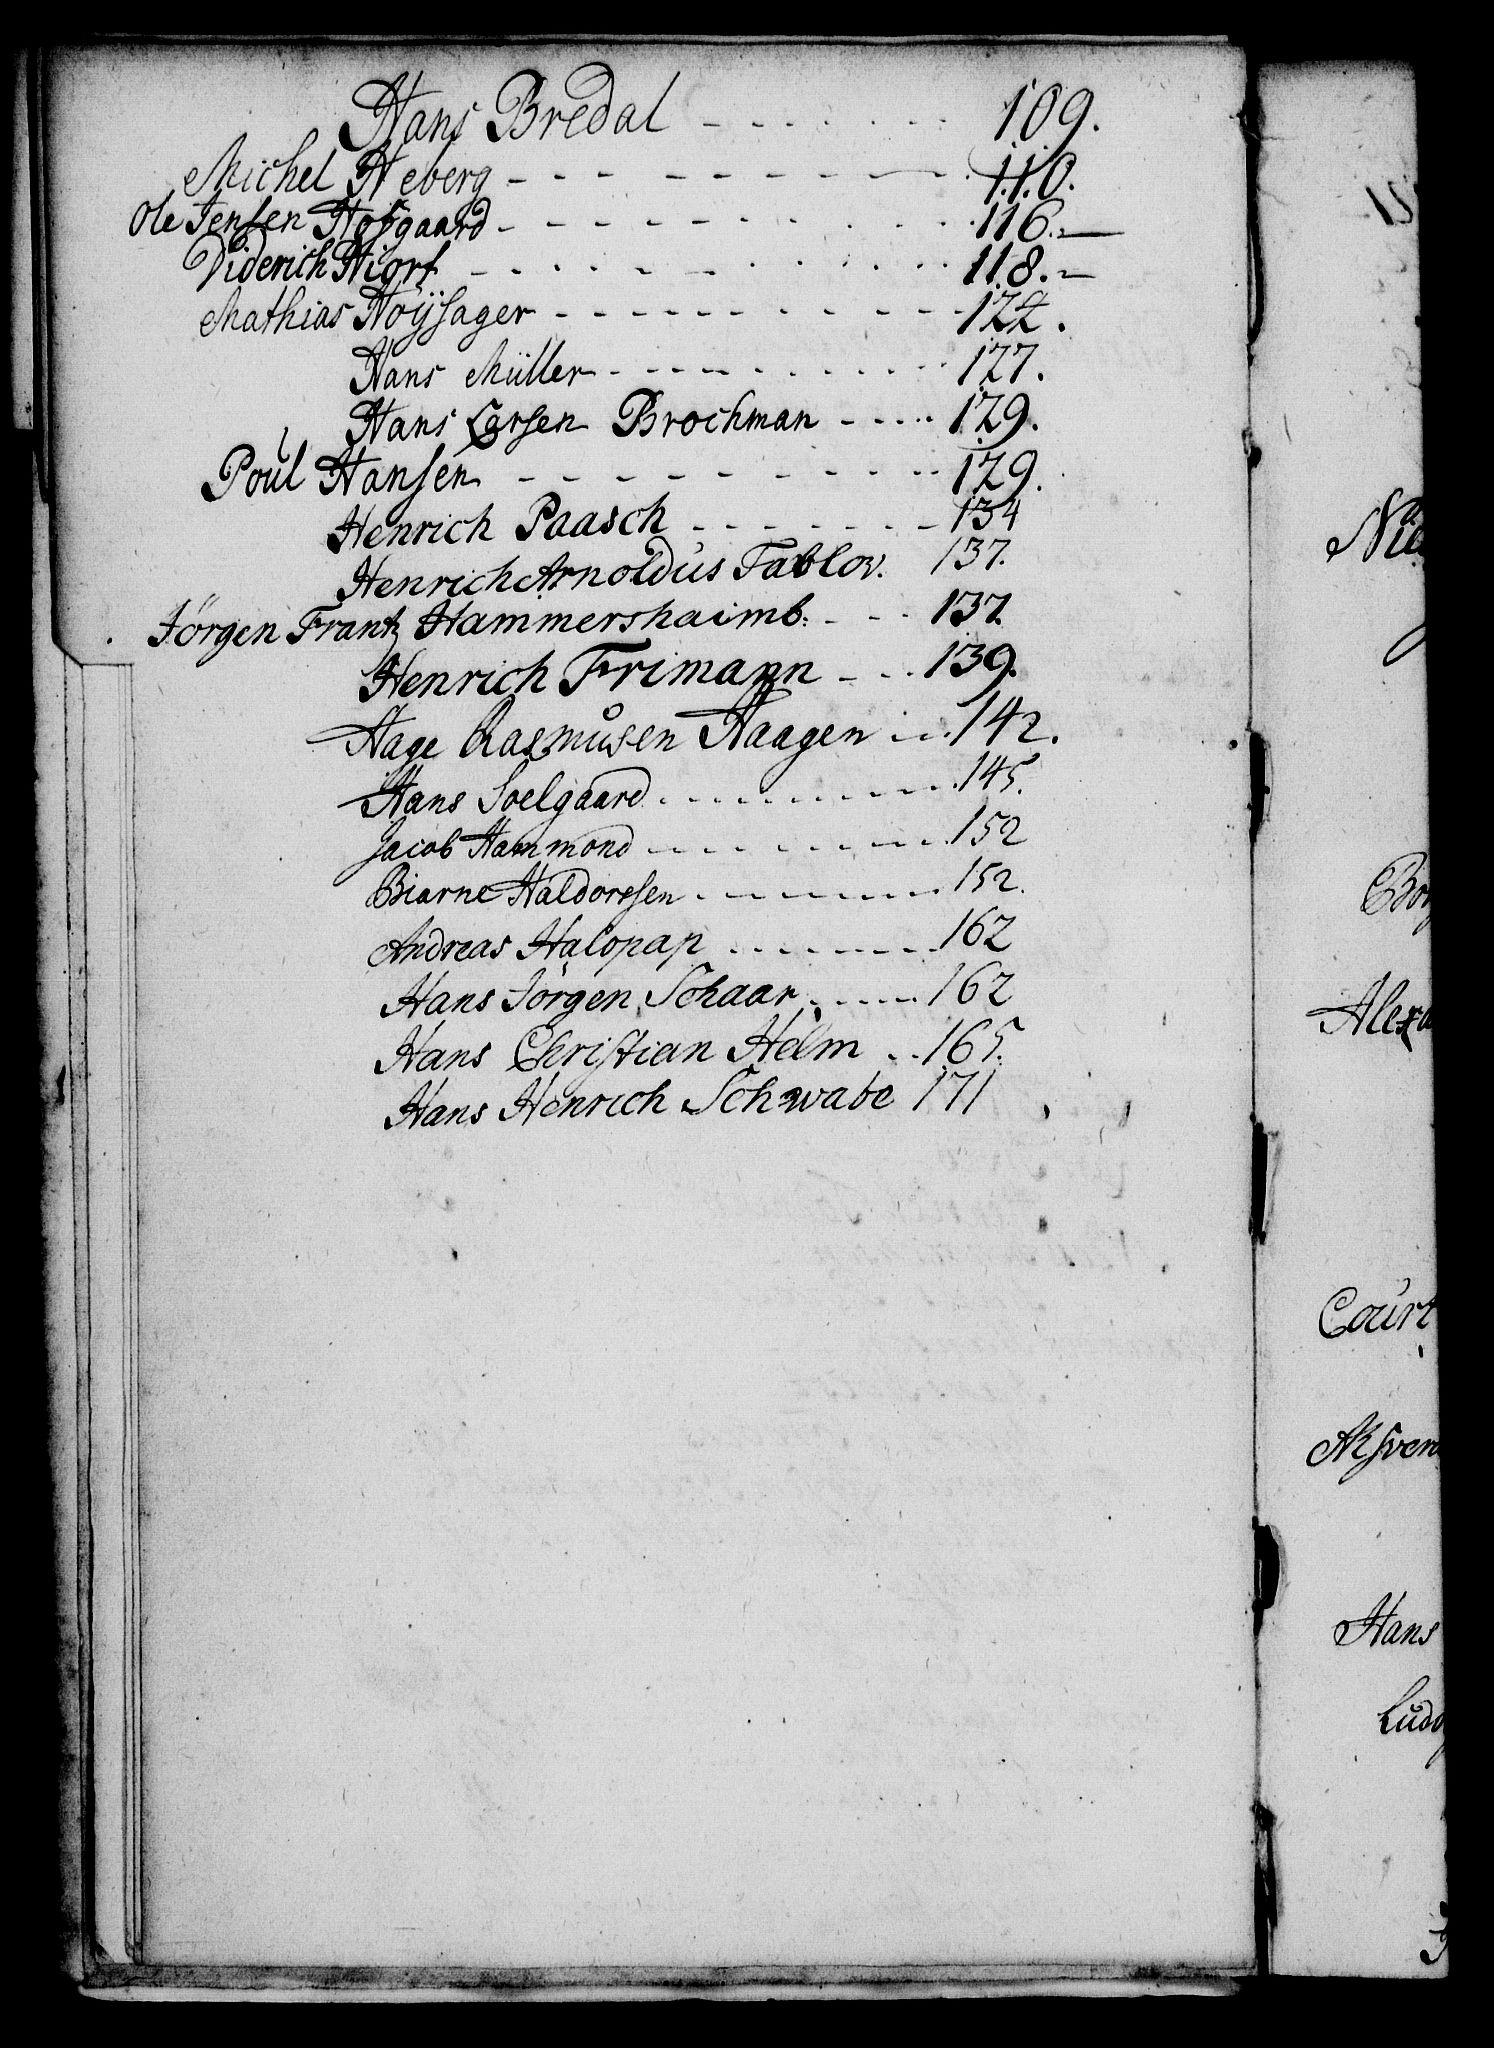 Hans Bredal - - - - - - - 109.
Michel Heberg - - - - - - - - 110.
Ole Jensen Hofgaard - - - - - - - - 116. -
Diderich Hiort - - - - - - - - 118. -
Mathias Höÿsager - - - - - - - - 124.
Hans Müller - - - - - - - - 127.
Hans Larsen Brochman - - - - 129.
Poul Hansen - - - - - - - - 129.
Henrich Paasch - - - - - - 134
Henrich Arnoldus Fablov. 137.
Jörgen Frantz Hammershaimb: - - - 137.
Henrich Frimann - - - 139.
Hage Rasmusen Haagen - - - 142.
Hans Soelgaard - - - - - - - - 145.
Jacob Hammond - - - - - - - - 152
Biarne Haldorssen - - - - - - - 152.
Andreas Halopap - - - - - - - 162
Hans Jörgen Schaar - - - - 162
Hans Christian Helm - - 165.
Hans Henrich Schwabe 171
Court
Hans